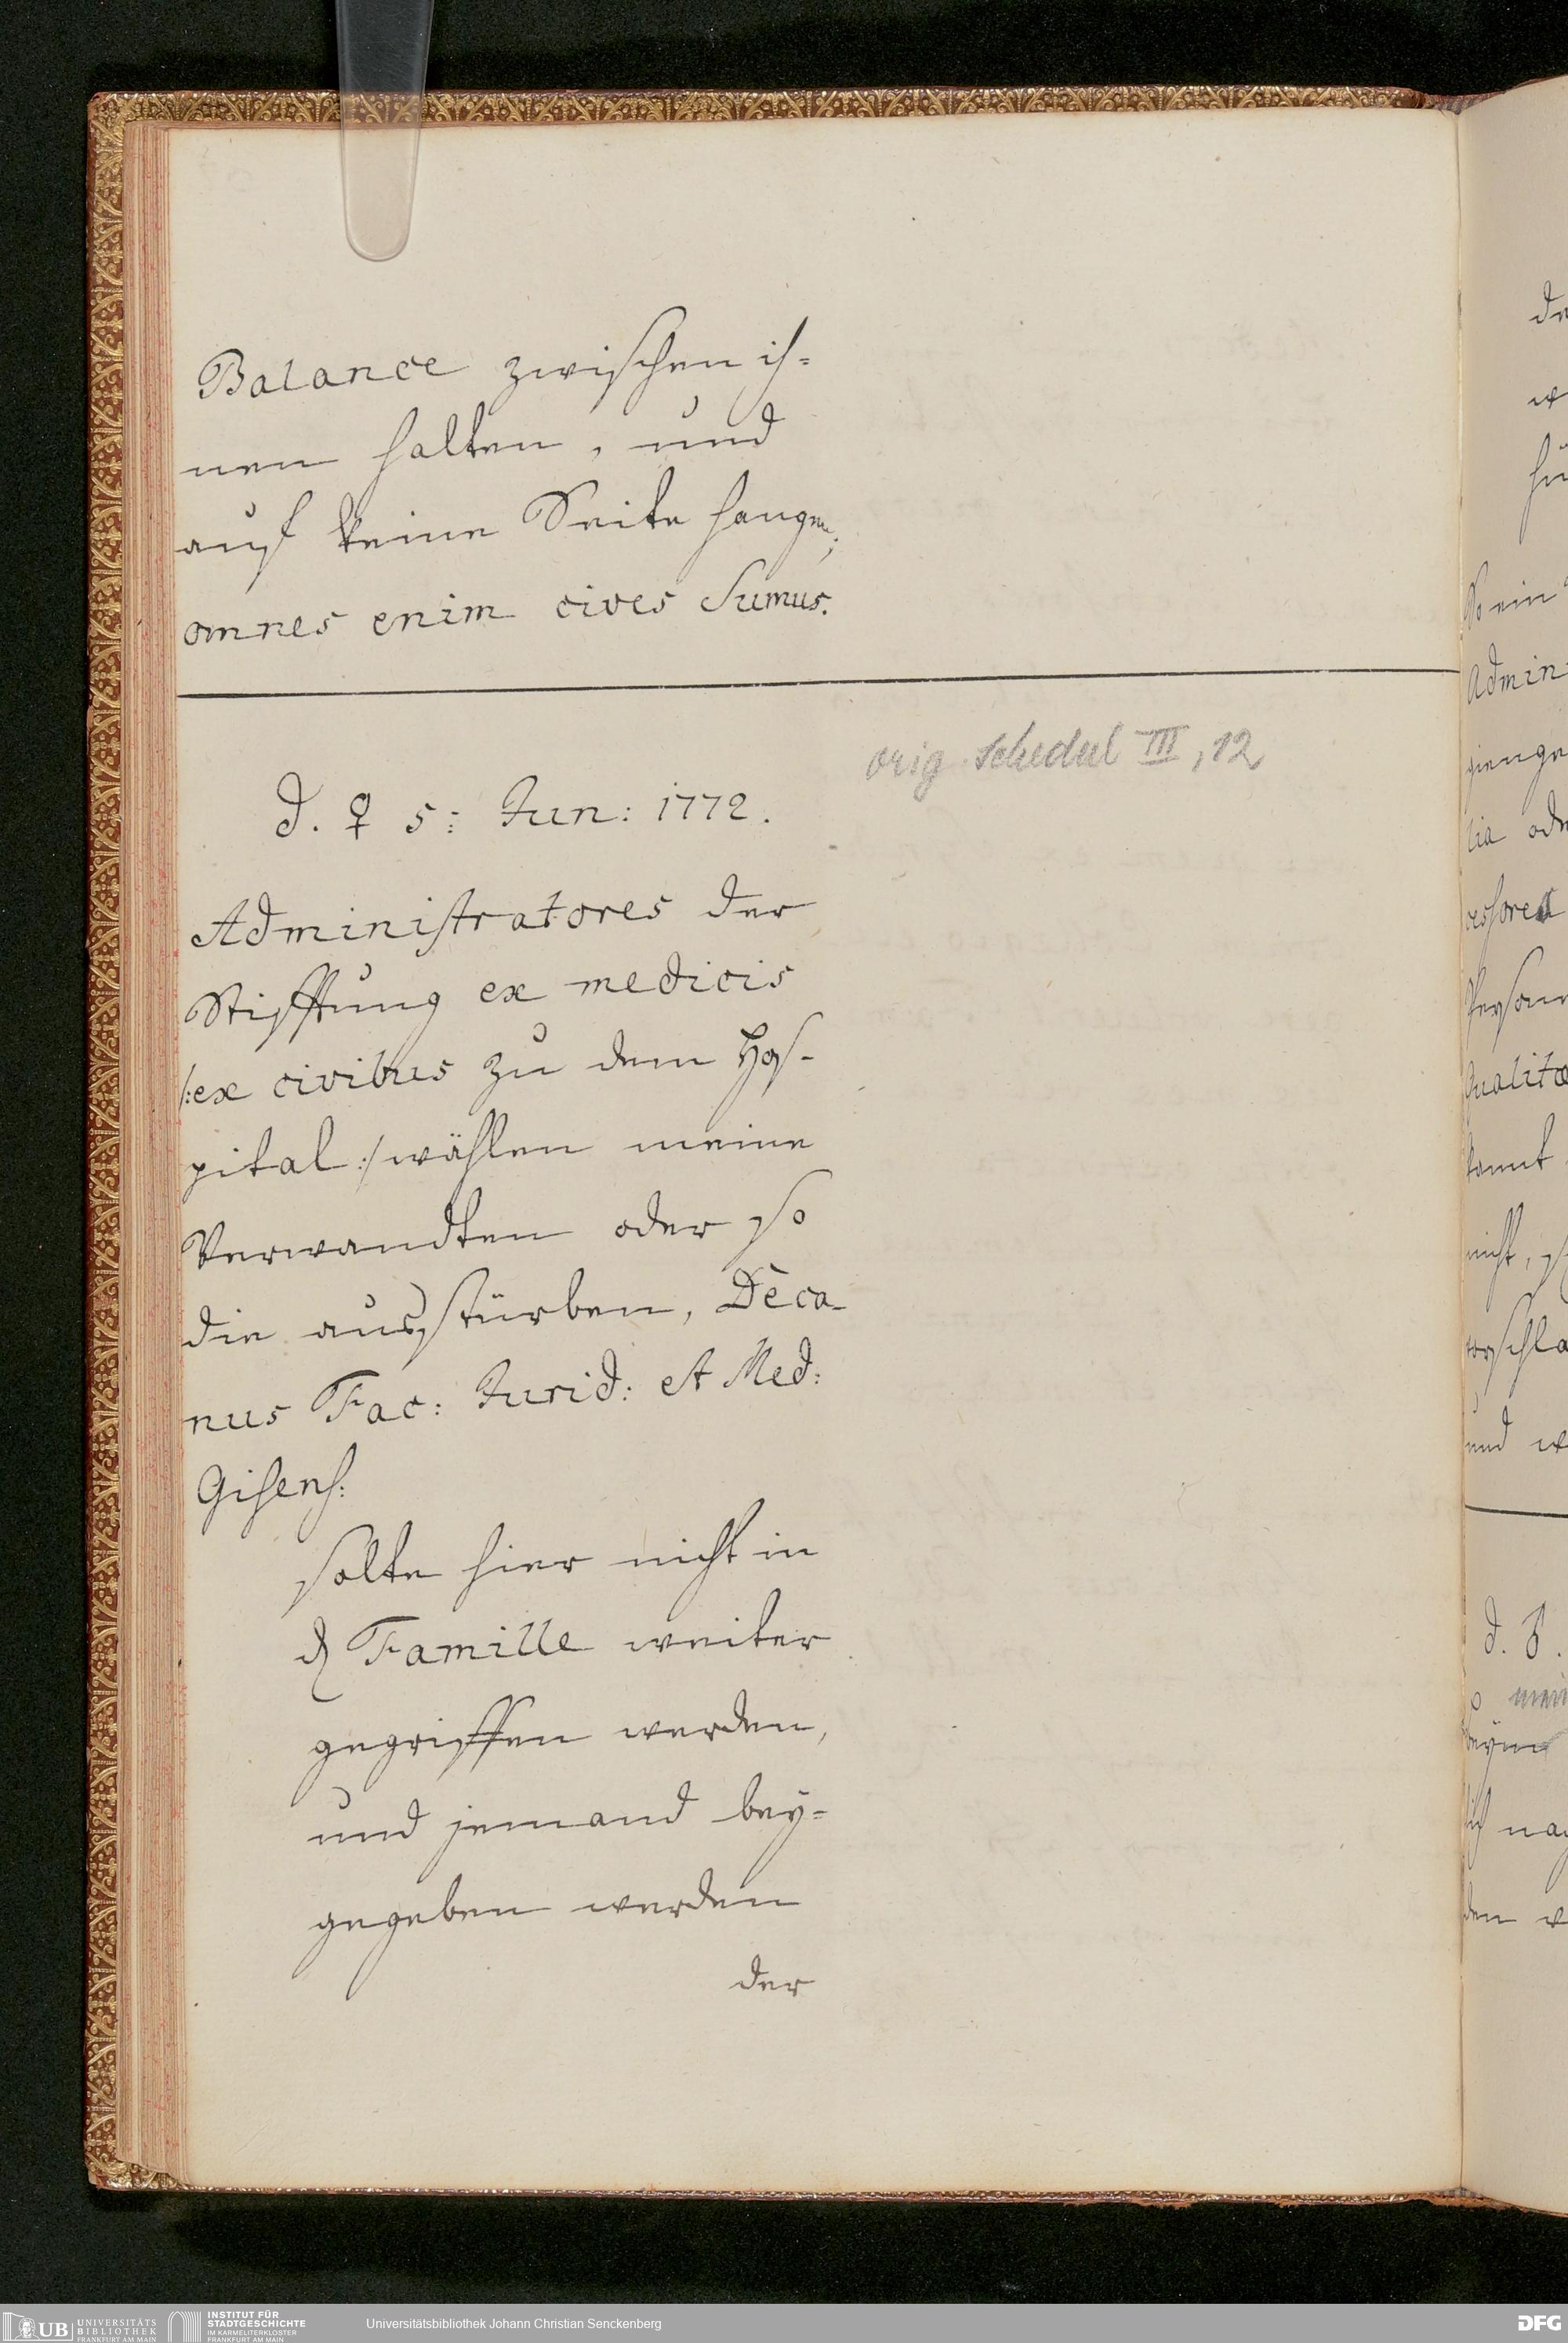 Balance zwischen ih=
nen halten, und
auf keine Seite hangen;
omnes enim cives Sumus.
orig Schedul III, 12
d. ♀ 5: Jun: 1772.
Administratores der
Stifftung ex medicis
/:ex civibus zu dem Hos-
pital:/ wählen meine
Verwandten oder so
die ausstürben, Deca-
nus Fac: Jurid: et Med:
Gisens:
solte hier nicht in
d Famille weiter
gegriffen werden,
und jemand bey=
gegeben werden
der
So ein
Admin
gienge
lia
Person
Qualitæ
kannt
nicht,
und
d.
den
UB UNIVERSITÄTS
BIBLIOTHEK
FRANKFURT AM MAIN
INSTITUT FÜR
STADTGESCHICHTE
IM KARMELITERKLOSTER
FRANKFURT AM MAIN
Universitätsbibliothek Johann Christian Senckenberg
DFG